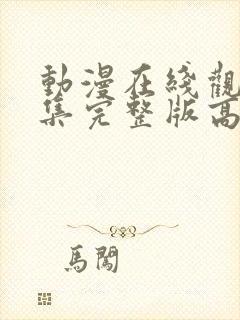 動漫在綫觀
集完整版高
馬闖